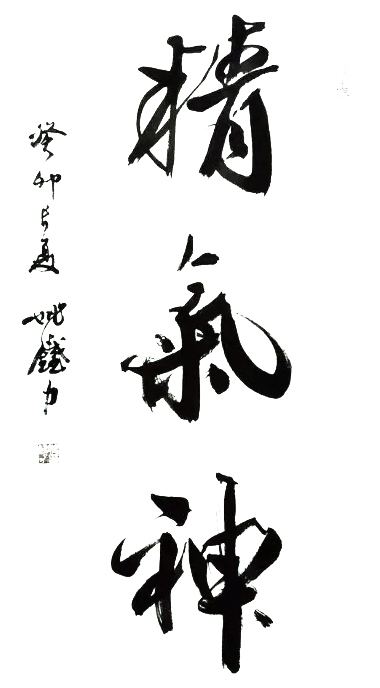 精氣神
癸卯長夏 姚鐵力